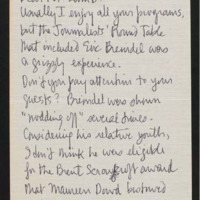 Usually I enjoy all your programs,
but the Journalists' Round Table
that included Eric Breindel was
a grizzly experience.
Don't you pay attention to your
guests? Breindel was shown
"nodding off" several times.
Considering his relative youth,
I don't think he was eligible
for the Brent Scowcroft award
that Maureen Dowd bestowed